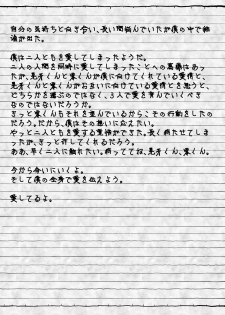 自分の気持ちと向き合い、長い間悩んでいたが僕の中で結
論が出た。
僕は二人ともを愛してしまったようだ。
二人の人間を同時に愛してしまったことへの葛藤はあっ
たが、兎芽くんと隼くんが僕に向けてくれている愛情と、
兎芽くんと隼くんがお互いに向けている愛情とを思うと、
どちらかを選ぶのではなく、3人で愛を育んでいくべき
なのではないだろうか。
きっと隼くんもそれを望んでいるからこその行動をしたの
だろう。だから、僕はその想いに応えたい。
やっと二人ともを愛する覚悟ができた。長く待たせてしま
ったが、きっと許してくれるだろう。
ああ、早く二人に触れたい。待っててね、兎芽くん、隼くん。
今から会いにいくよ。
そして僕の全身で愛を伝えよう。
愛してるよ。